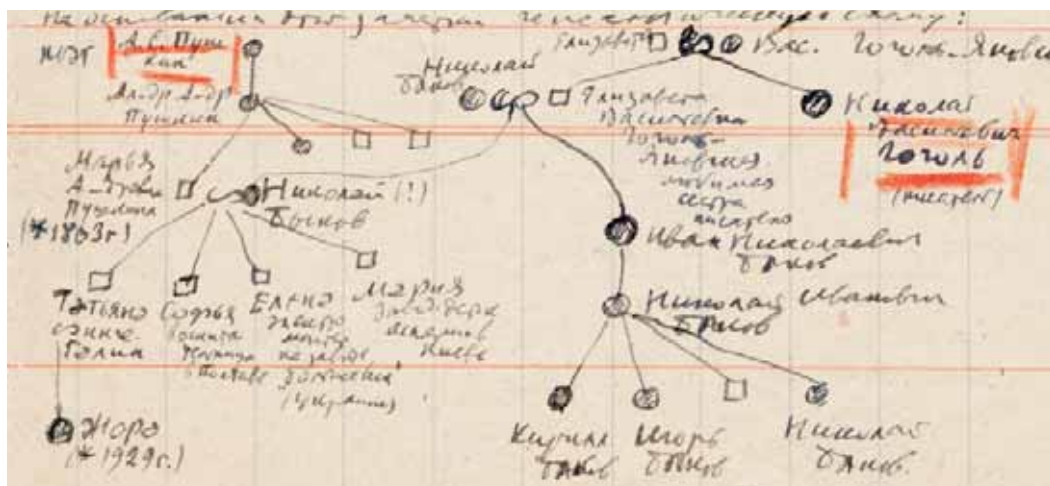 На основании этого
схему:
поэт
А.С. Пуш
кин
Ал-др А-др
Пушкин
Елизавета
Вас. Гоголь-Яновск
Николай
Быков
Елизавета
Васильевна
Гоголь-
Яновская
любимая
сестра
писателя
Николай
Васильевич
Гоголь
(писатель)
Марья
А-дровна
Пушкина
(* 1863 г.)
Николай (!)
Быков
Иван Николаевич
Быков
Николай Иванович
Быков
Татьяна
Галина
Софья
в Полтаве
Елена
на заводе
(Украине)
Мария
Киева
Жора
(* 1929 г.)
Кирилл
Быков
Игорь
Быков
Николай
Быков.